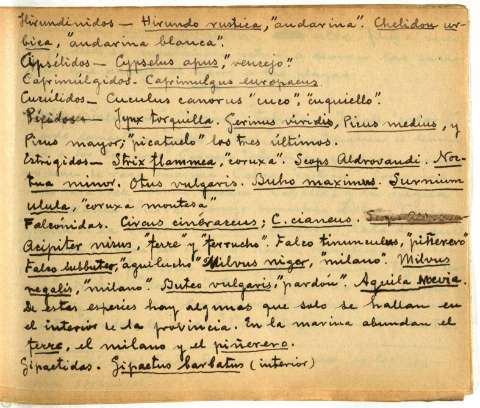 Hirundinidos — Hirundo rustica, "andarina". Chelidon ur-
bica, "andarina blanca".
Cipsélidos — Cypselus apus, "vencejo".
Caprimúlgidos — Caprimulgus europaeus.
Cucúlidos — Cuculus canorus "cuco", "cuquiello".
Pícidos — Jynx torquilla. Gecinus viridis, Picus medius, y
Picus mayor, "picatuelo" los tres últimos.
Estrigidos — Strix flammea, "coruxa". Scops Aldrovandi. Noc-
tua minor. Otus vulgaris. Buho maximus. Surnium
ulula, "coruxa montesa"
Falcónidas. Circus cinéraceus; C. cianeus.
Acipiter nisus, "ferre" y "ferrucho". Falco tinunculus, "piñerero"
Falco subbuteo, "aguilucho" Milvus niger, "milano". Milvus
regalis, "milano". Buteo vulgaris, "pardon". Aquila noevia.
De estas especies hay algunas que solo se hallan en
el interior de la provincia. En la marina abundan el
ferre, el milano y el piñerero.
Gipaetidas. Gipaetus barbatus (interior)